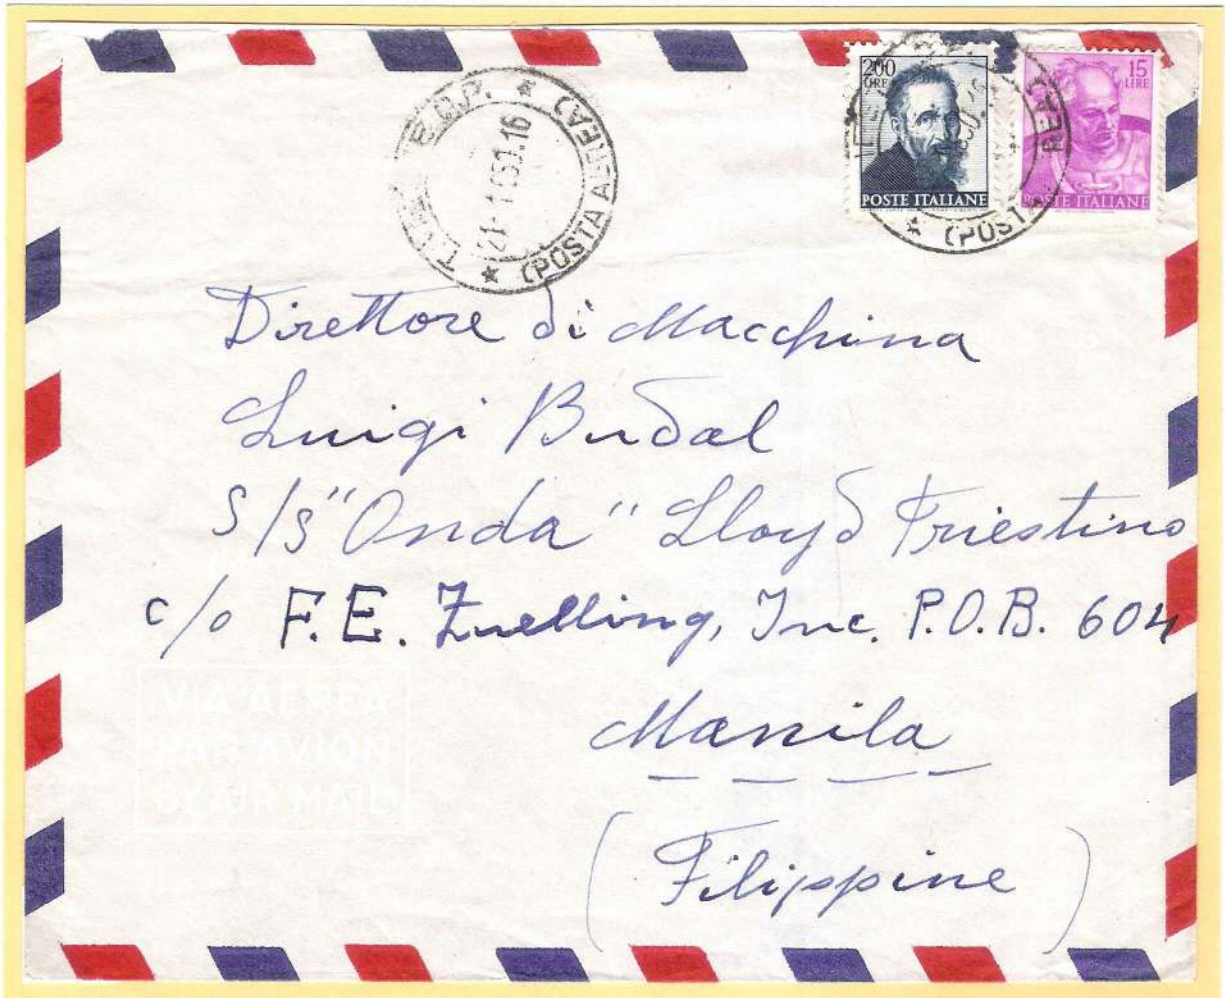 200
LIRE
POSTE ITALIANE
15
LIRE
POSTE ITALIANE
(POSTA AEREA)
(POSTA AEREA)
Direttore di Macchina
Luigi Budal
S/S "Onda" Lloyd Triestino
c/o F.E. Zuelling, Inc. P.O.B. 604
Manila
(Filippine)
VIA AEREA
PAR AVION
BY AIR MAIL